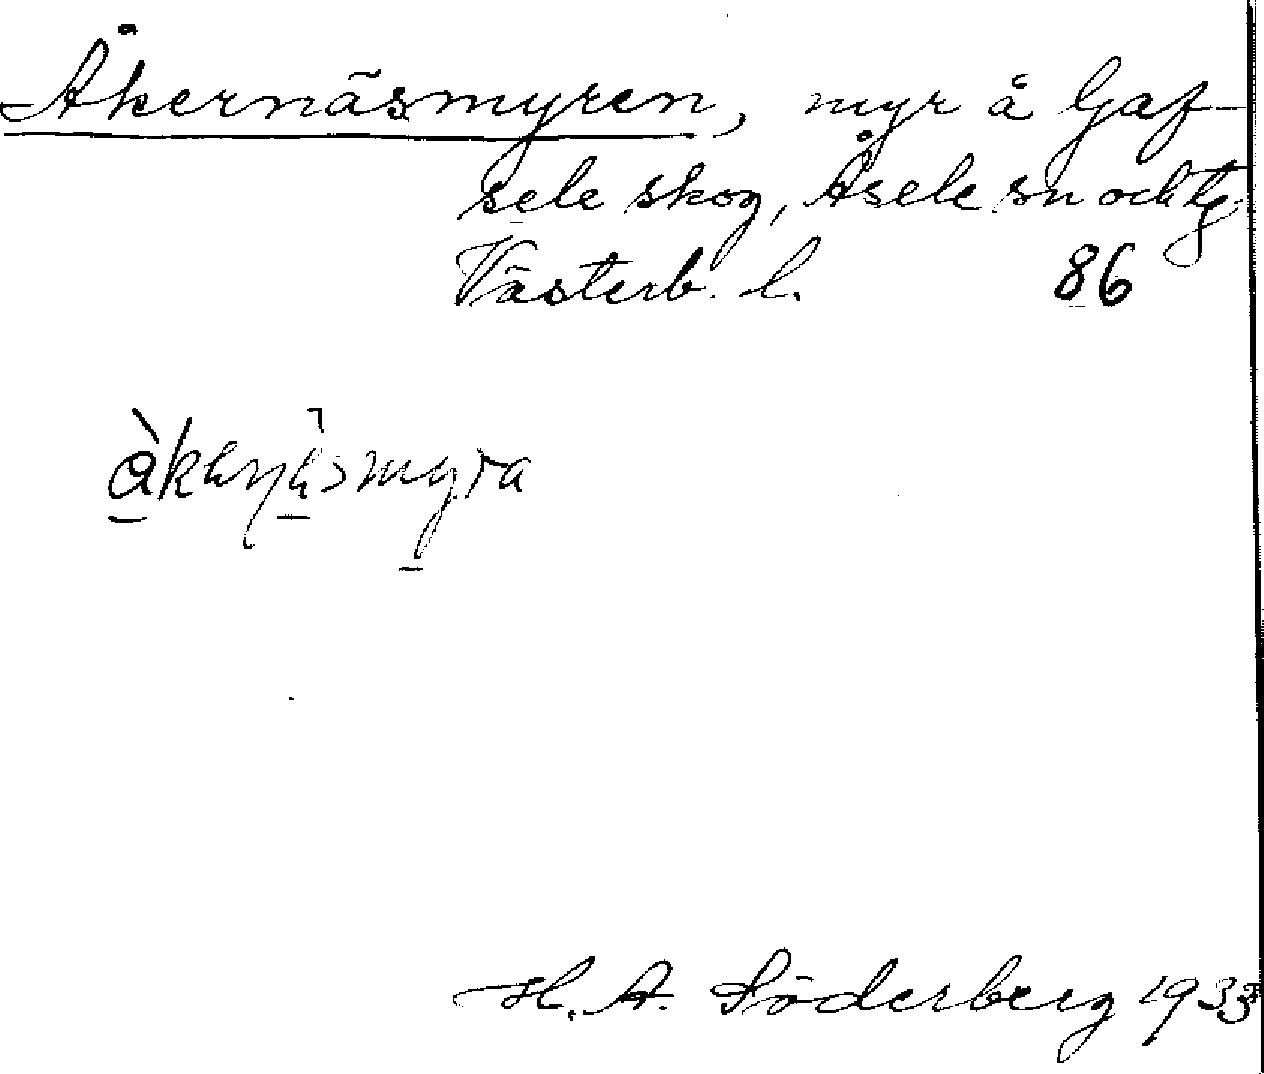 Åkernäsmyren, myr å Gaf-
sele skog, Åsele sn och tg.
Västerb. l. 86
H. A. Söderberg 1933